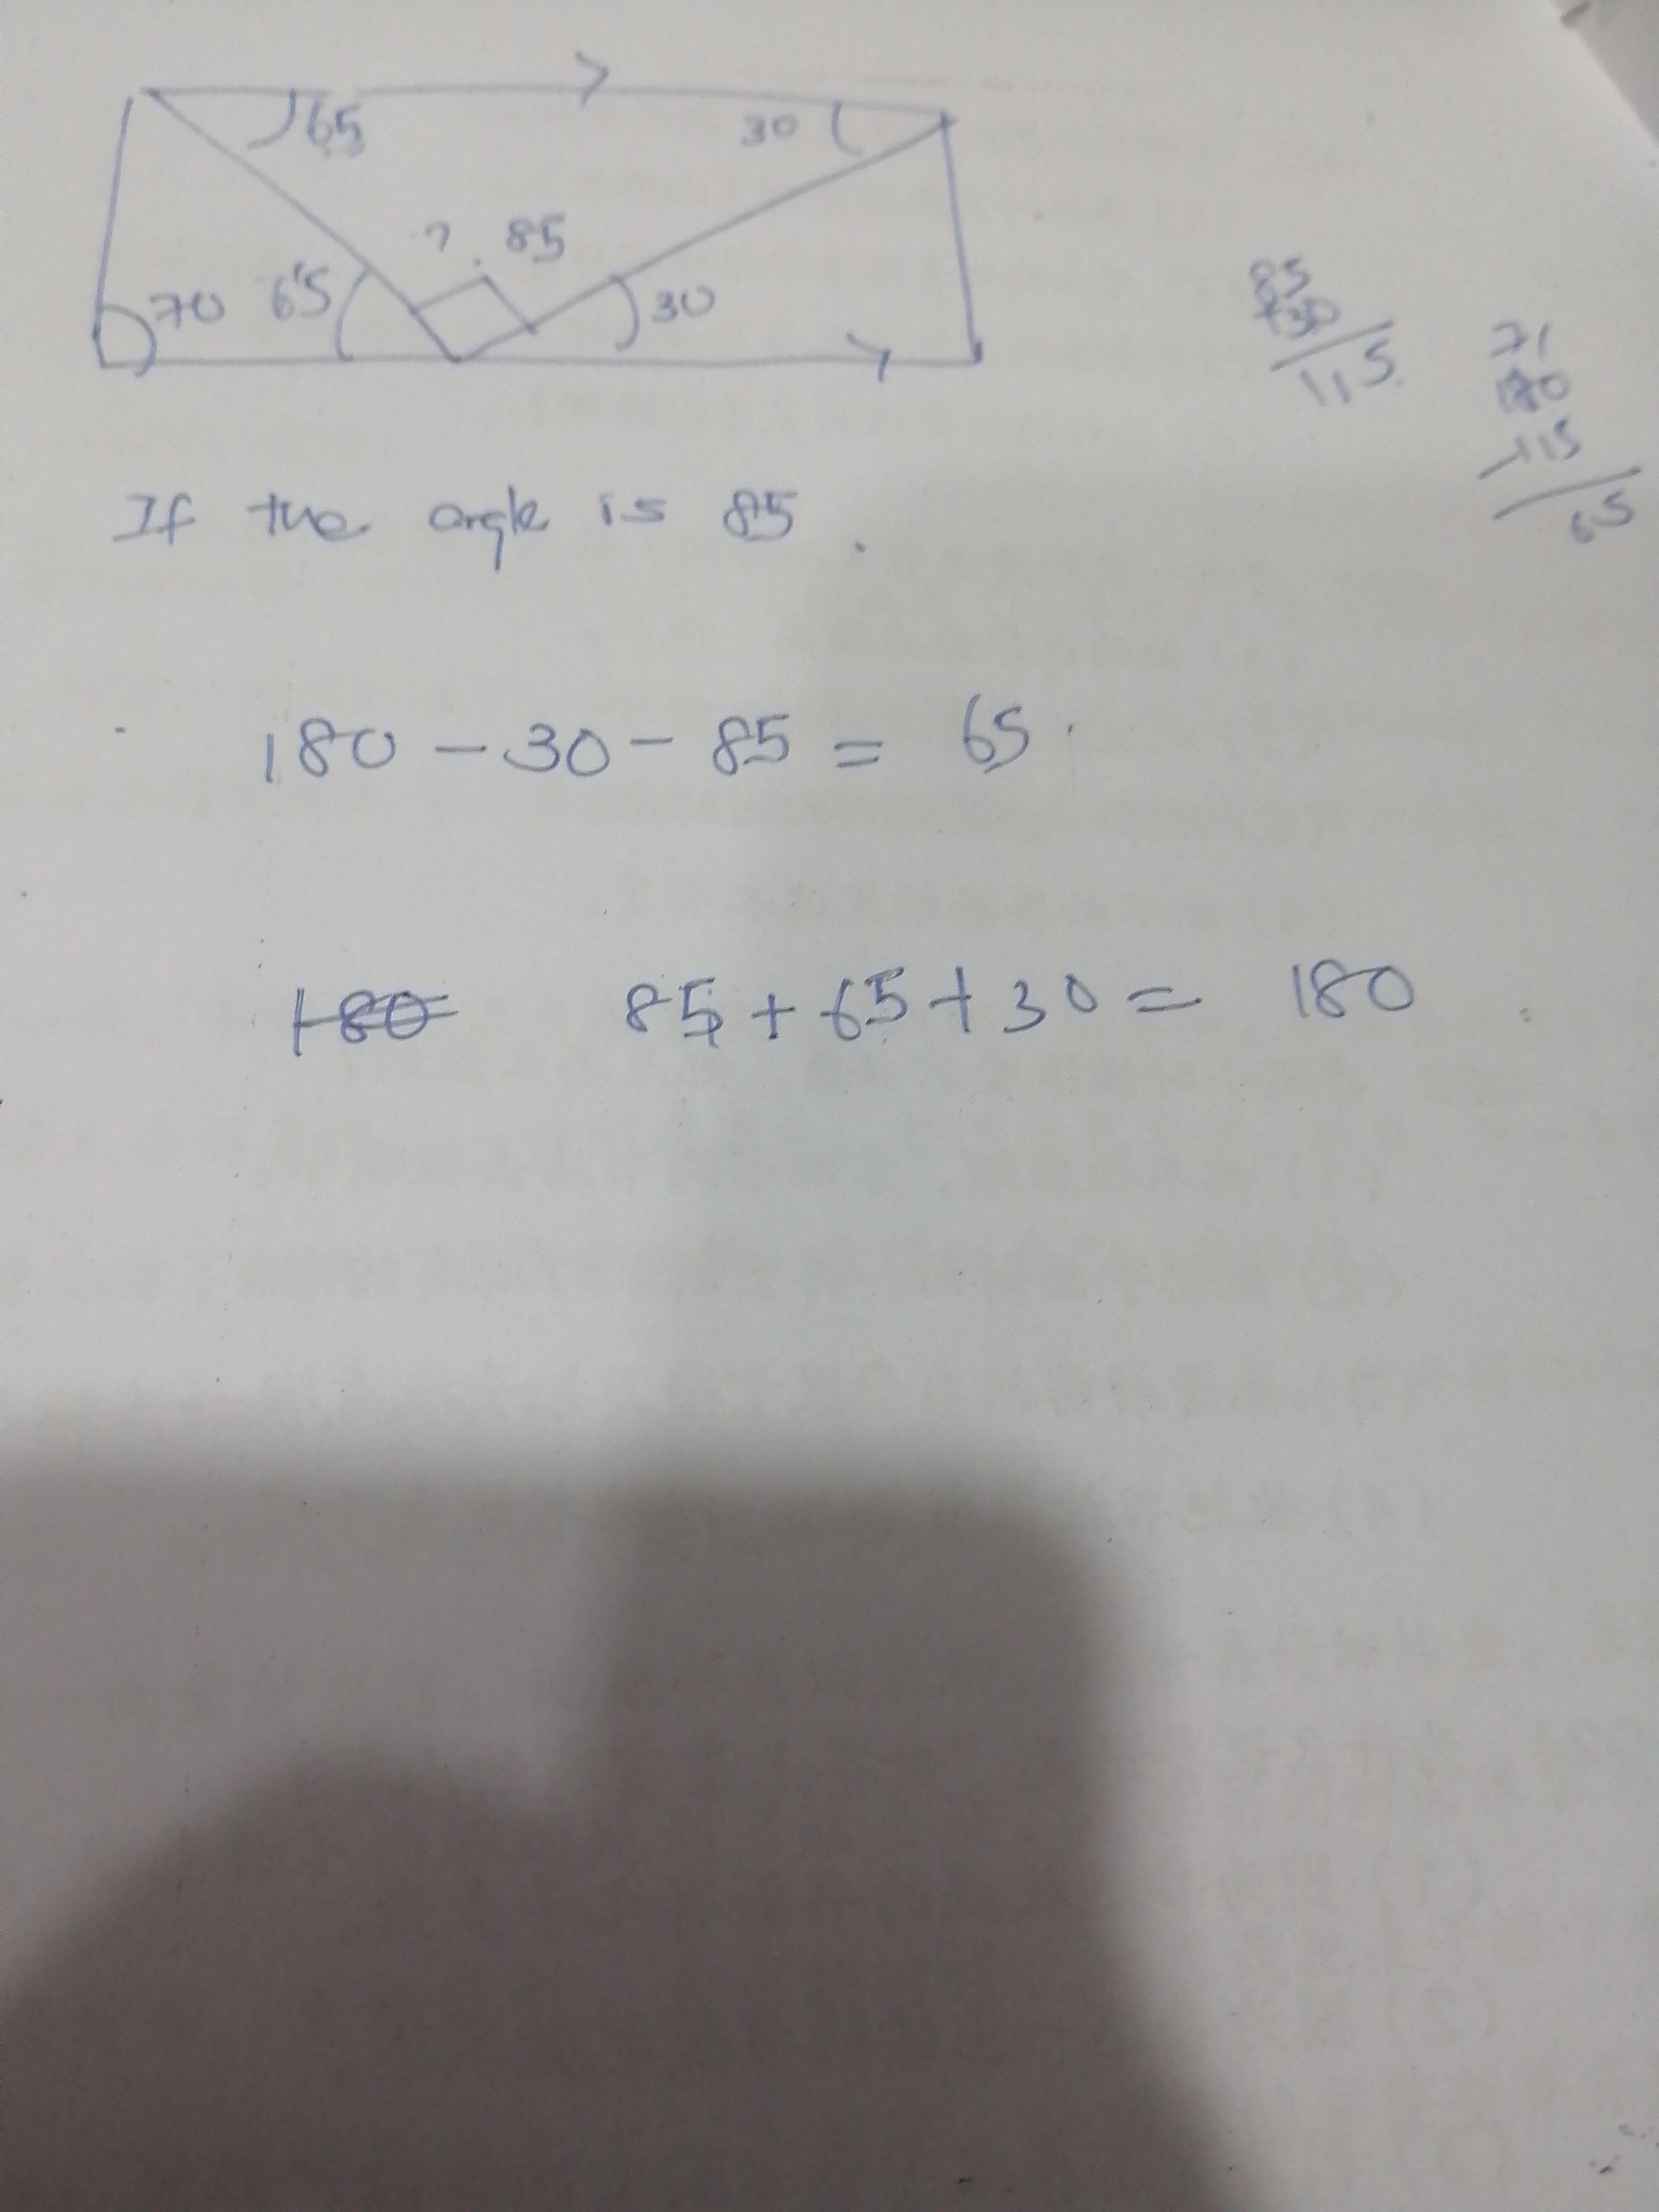 65 30
? . 85
70 65 30
85
+30
115
71
180
115
65
If the angle is 85 .
180 - 30 - 85 = 65 .
180 85 + 65 + 30 = 180